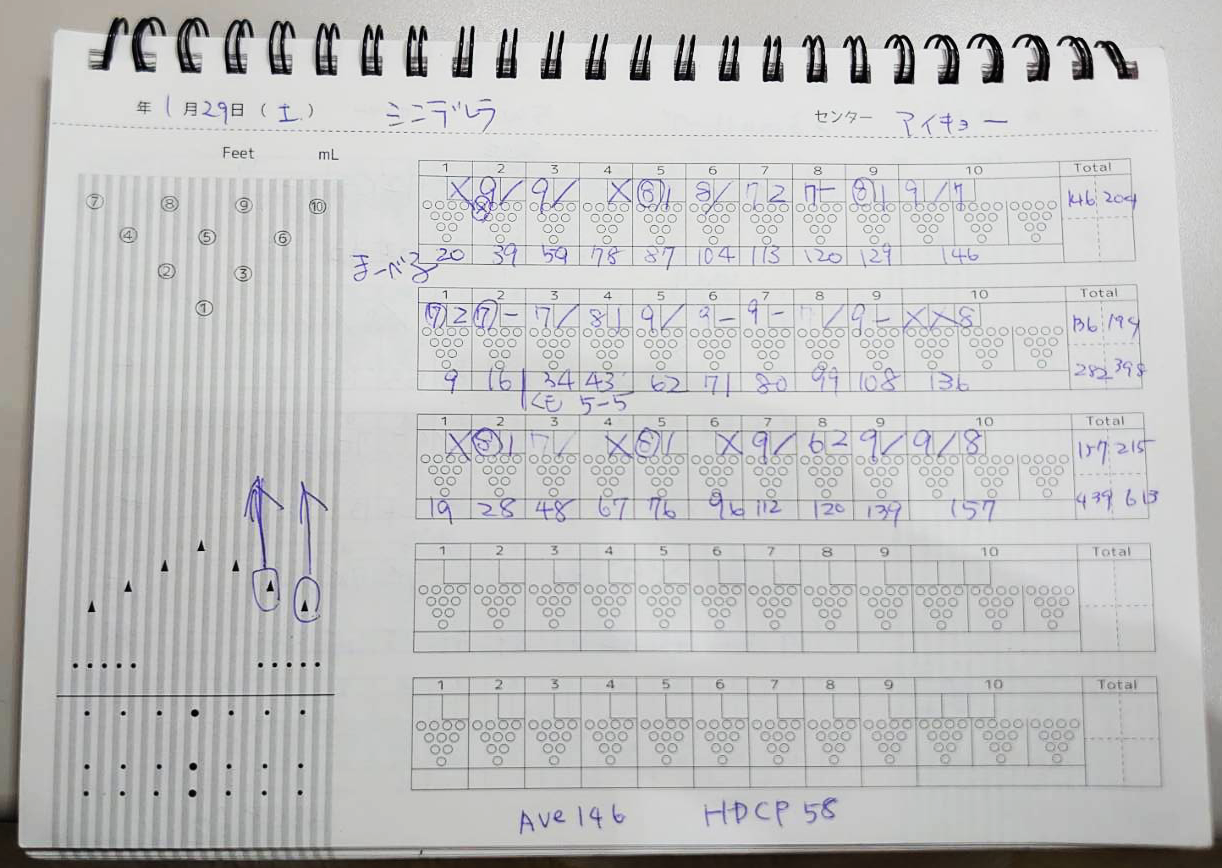 年 1月29日(土) ミニデレラ センター アイキョー
Feet mL
⑦ ⑧ ⑨ ⑩
④ ⑤ ⑥
② ③
①
1 2 3 4 5 6 7 8 9 10 Total
X 9/ 9/ X ⑧1 8/ 72 7- ⑧1 9/7 146 204
⑧
20 39 59 78 87 104 113 120 129 146
1 2 3 4 5 6 7 8 9 10 Total
⑦2 ⑦- 7/ 81 9/ 9- 9- 7/ 9- XX8 136 194
282 398
9 16 34 43 62 71 80 99 108 136
5-5
1 2 3 4 5 6 7 8 9 10 Total
X ⑧1 7/ X ⑧1 X 9/ 62 9/ 9/8 157 215
439 613
19 28 48 67 76 96 112 120 139 157
1 2 3 4 5 6 7 8 9 10 Total
1 2 3 4 5 6 7 8 9 10 Total
Ave 146 HDCP 58